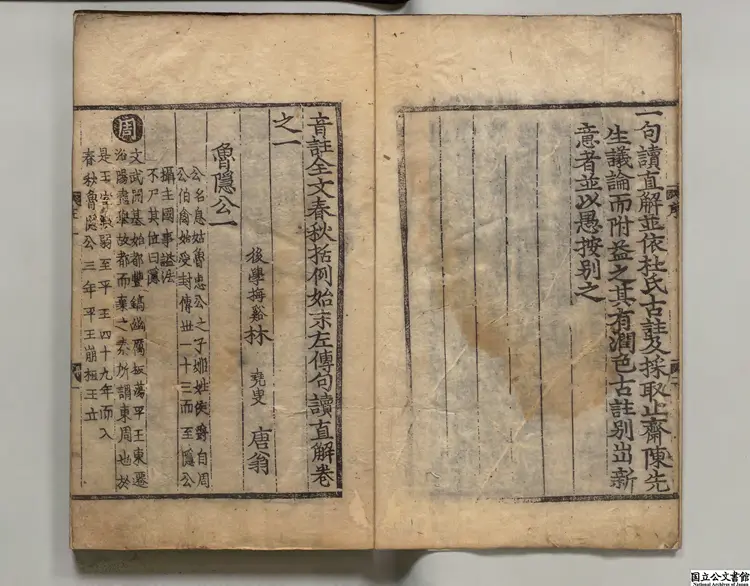 一句讀直解並依杜氏古註及採取止齋陳先
生議論而附益之其有潤色古註別出新
意者並以愚按別之
音註全文春秋括例始末左傳句讀直解卷
之一
後學梅谿林 堯叟 唐翁
魯隱公一
公名息姑魯惠公之子姬姓侯爵自周
公伯禽始受封傳世一十三而至隱公
攝主國事謚法
不尸其位曰隱
周
文武開基始都豐鎬幽厲板蕩平王東遷
洛陽盡舉故都而棄之秦所謂東周也於
是王室微弱至平王四十九年而入
春秋魯隱公三年平王崩桓王立
国立公文書館
National Archives of Japan